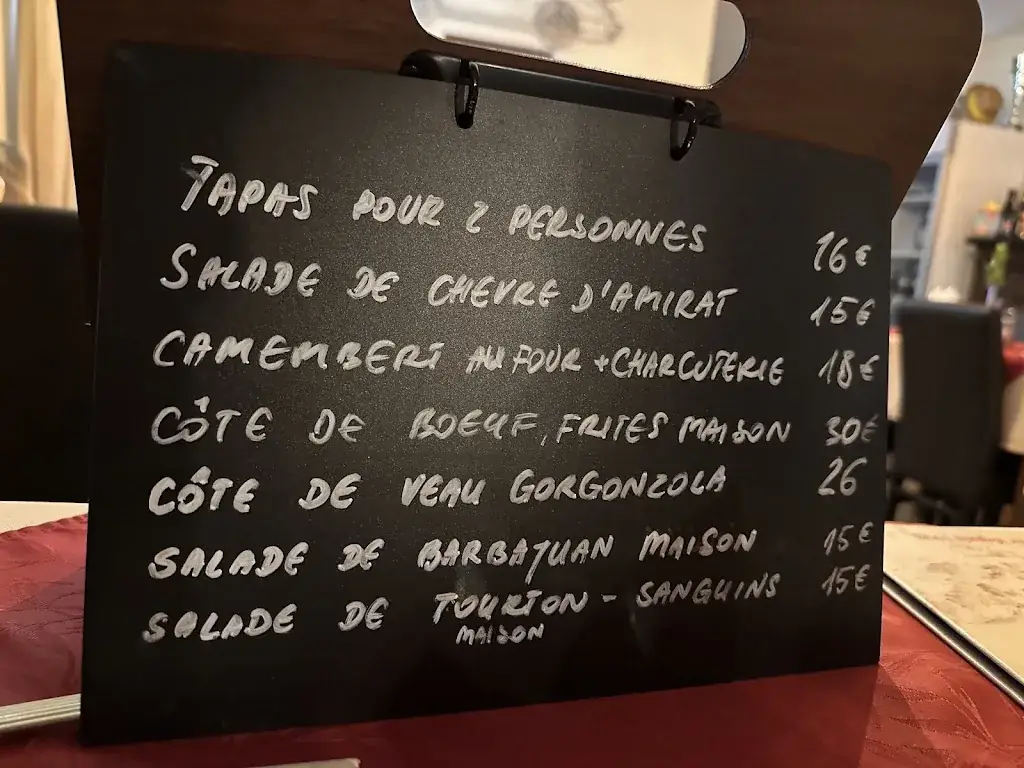 TAPAS POUR 2 PERSONNES 16€
SALADE DE CHEVRE D'AMIRAT 15€
CAMEMBERT AU FOUR + CHARCUTERIE 18€
CÔTE DE BOEUF, FRITES MAISON 30€
CÔTE DE VEAU GORGONZOLA 26
SALADE DE BARBAJUAN MAISON 15€
SALADE DE TOURTON - SANGUINS 15€
MAISON